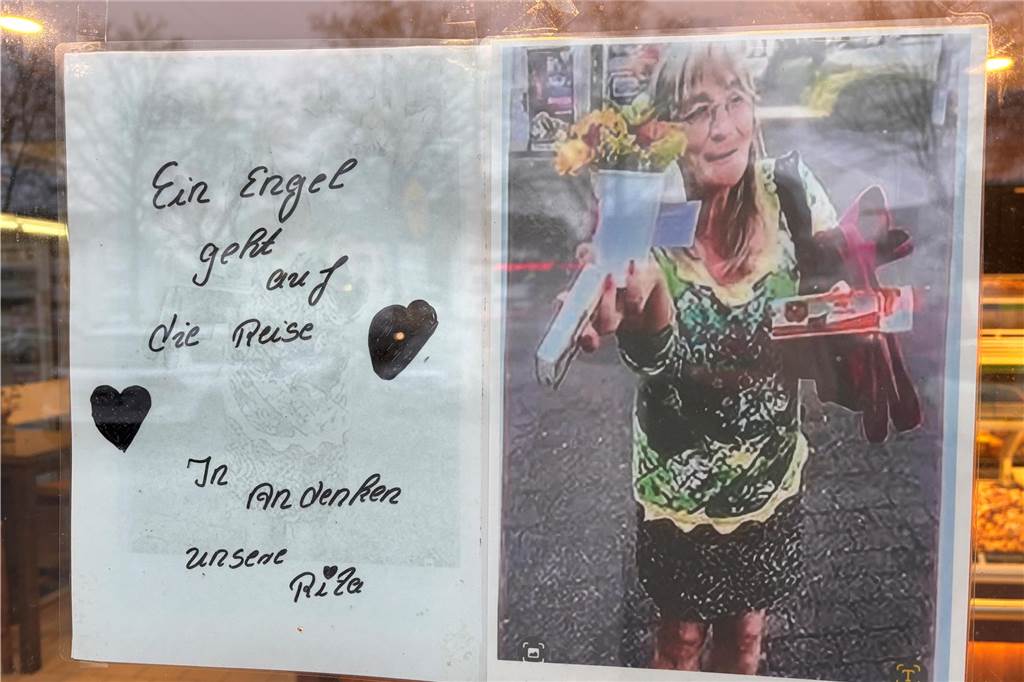 Ein Engel
geht
auf
die Reise
In
Andenken
unsere
Rita